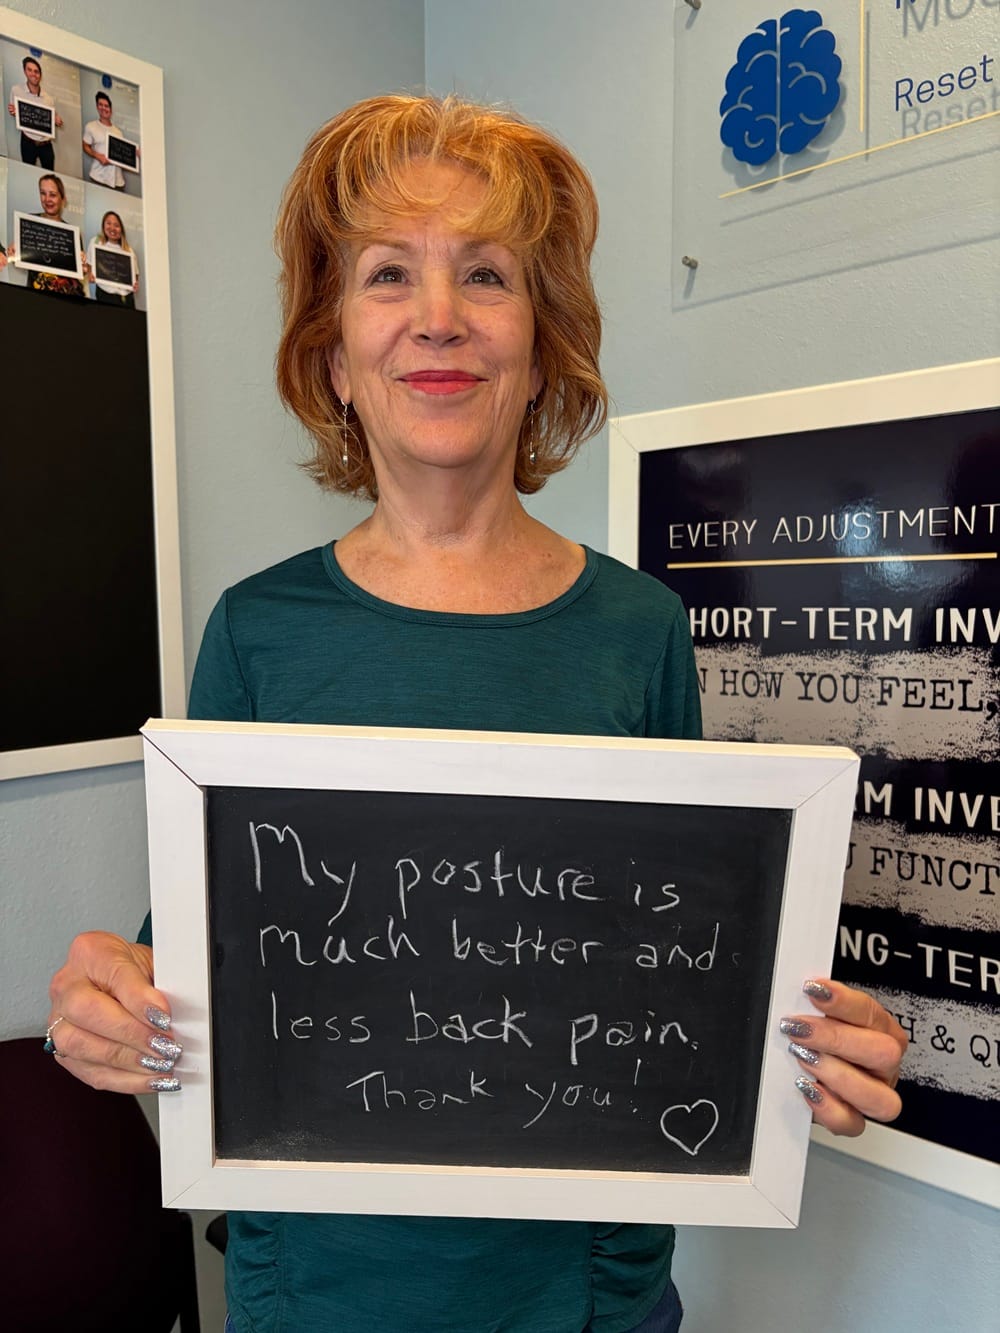 Reset
EVERY ADJUSTMENT
HORT-TERM INV
N HOW YOU FEEL,
M INVE
U FUNCT
NG-TER
H & QU
My posture is
much better and
less back pain.
Thank you!